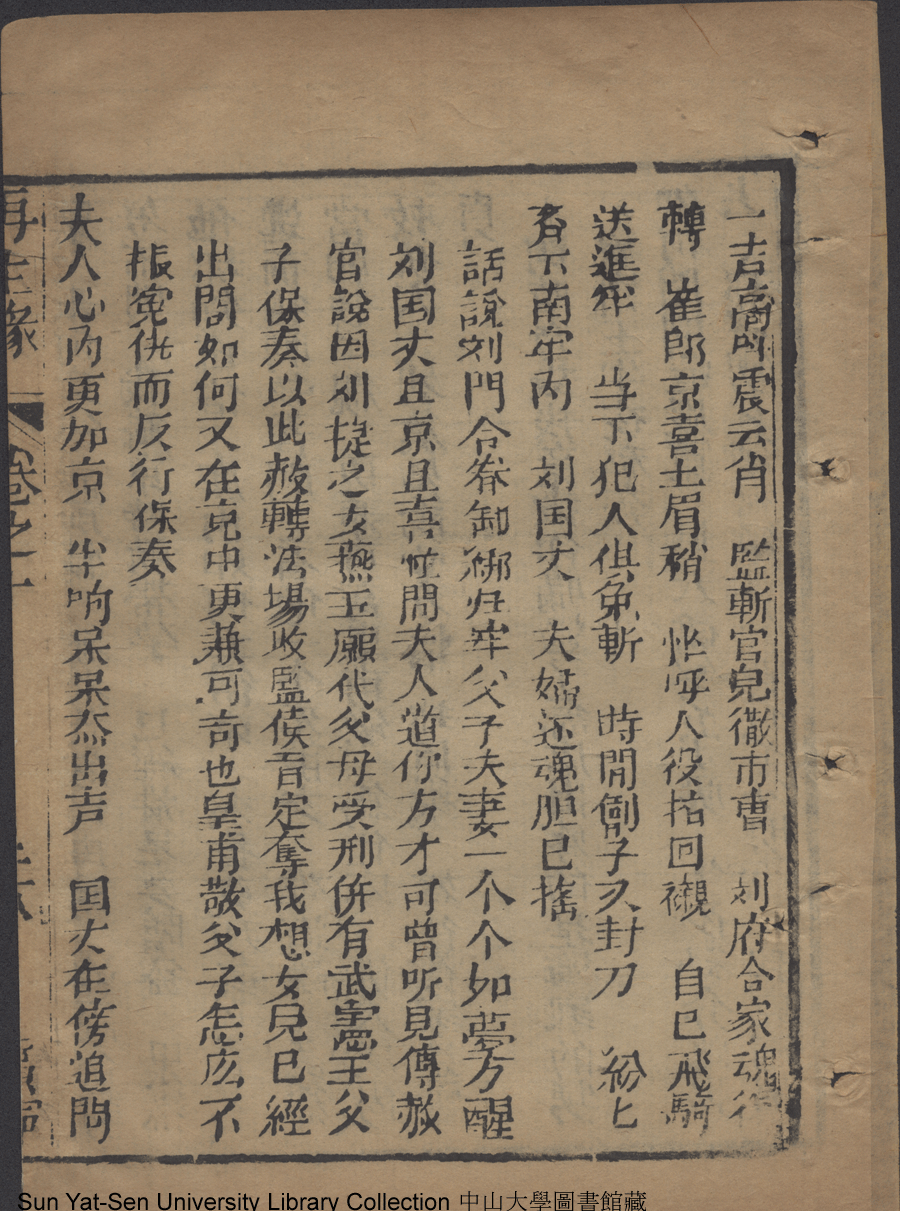 一声高叫震云肖　監斬官兒徹市曹　刘府合家魂復
轉　崔郎京喜上眉稍　忙呼人役抬回襯　自已飛騎
送進牢　当下犯人俱免斬　時間劊子又封刀　紛匕
斉下南牢内　刘国丈　夫婦还魂胆已摇
話說刘門合眷卸綁归牢父子夫妻一个个如夢方醒
刘国丈且京且喜忙問夫人道你方才可曾听見傳赦
官說因刘捷之女燕玉願代父母受刑併有武憲王父
子保奏以此赦轉法場收監侯旨定奪我想女兒已經
出問如何又在京中更兼可奇也皇甫敬父子怎庅不
報寃仇而反行保奏
夫人心内更加京　半响呆呆杰出声　国丈在傍追問
再生緣　卷之十